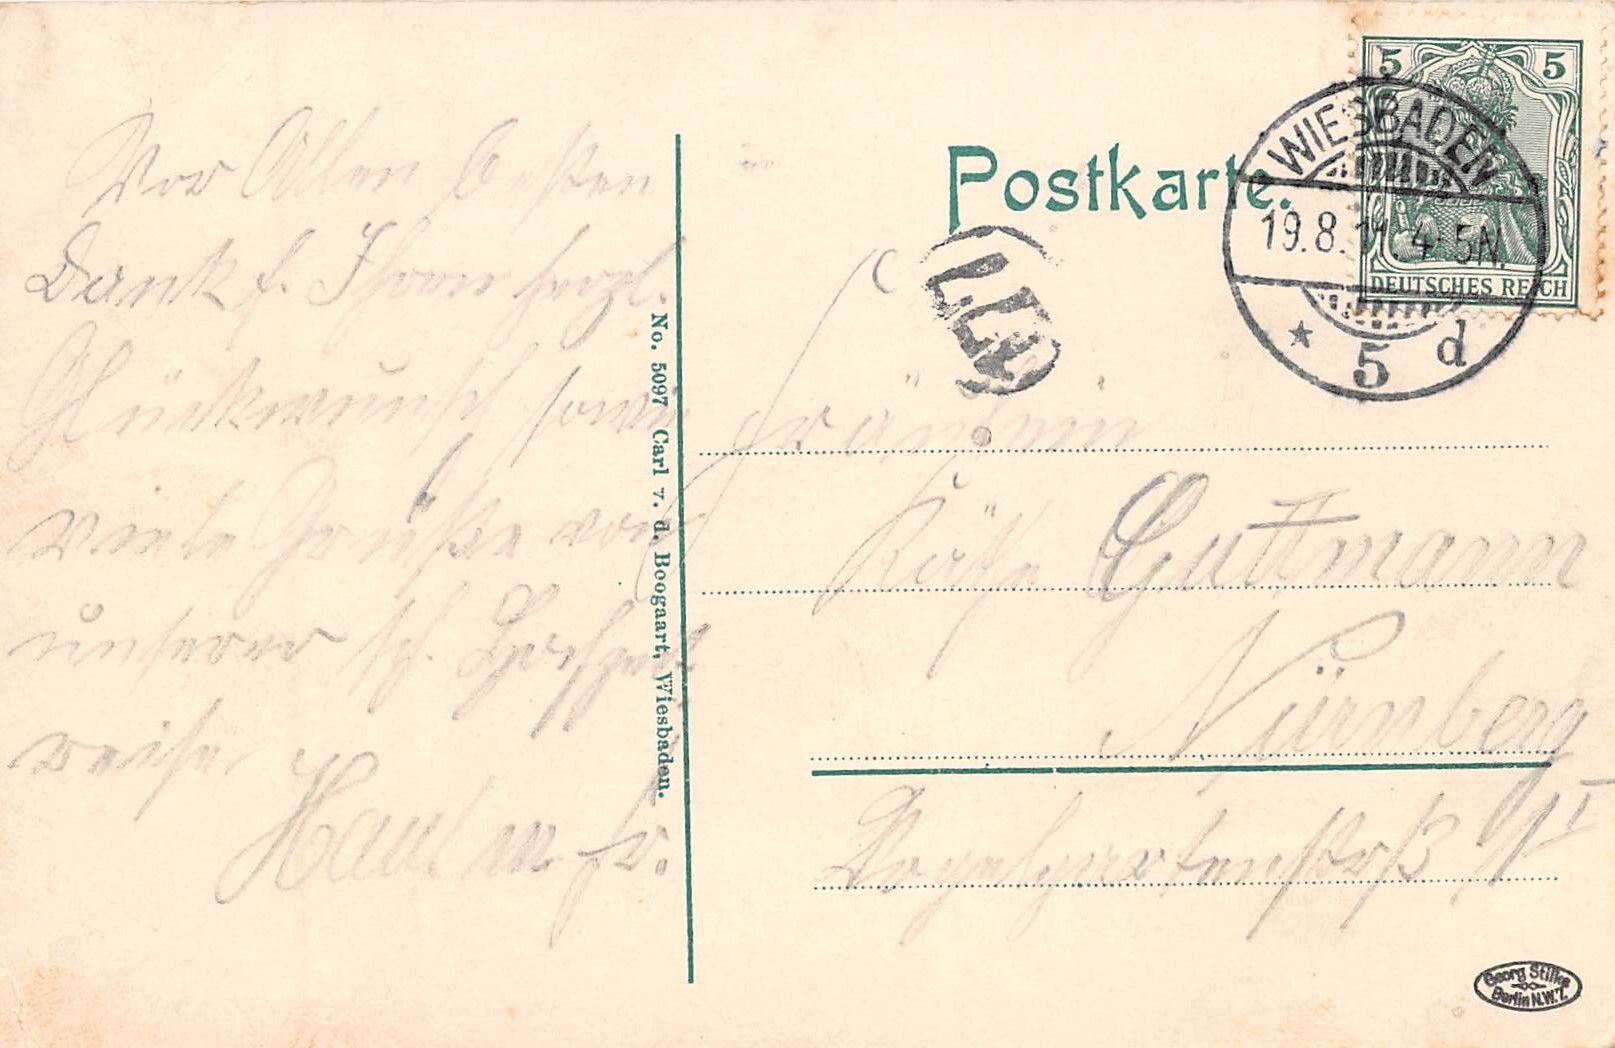 Vor Allen besten
Dank f. Ihren herzl.
Glückwunsch sowie
viele Grüße von
unserer sch. Hochzeits
reise.
m. Fr.
No. 5097 Carl v. d. Boogaart, Wiesbaden.
Postkarte.
5 5
DEUTSCHES REICH
WIESBADEN
19.8.11. 4-5N.
* 5 d
Fräulein
Käthe Guttmann
Nürnberg
Vogelgartenstrß 1 I
Georg Stilke
Berlin N.W.7.